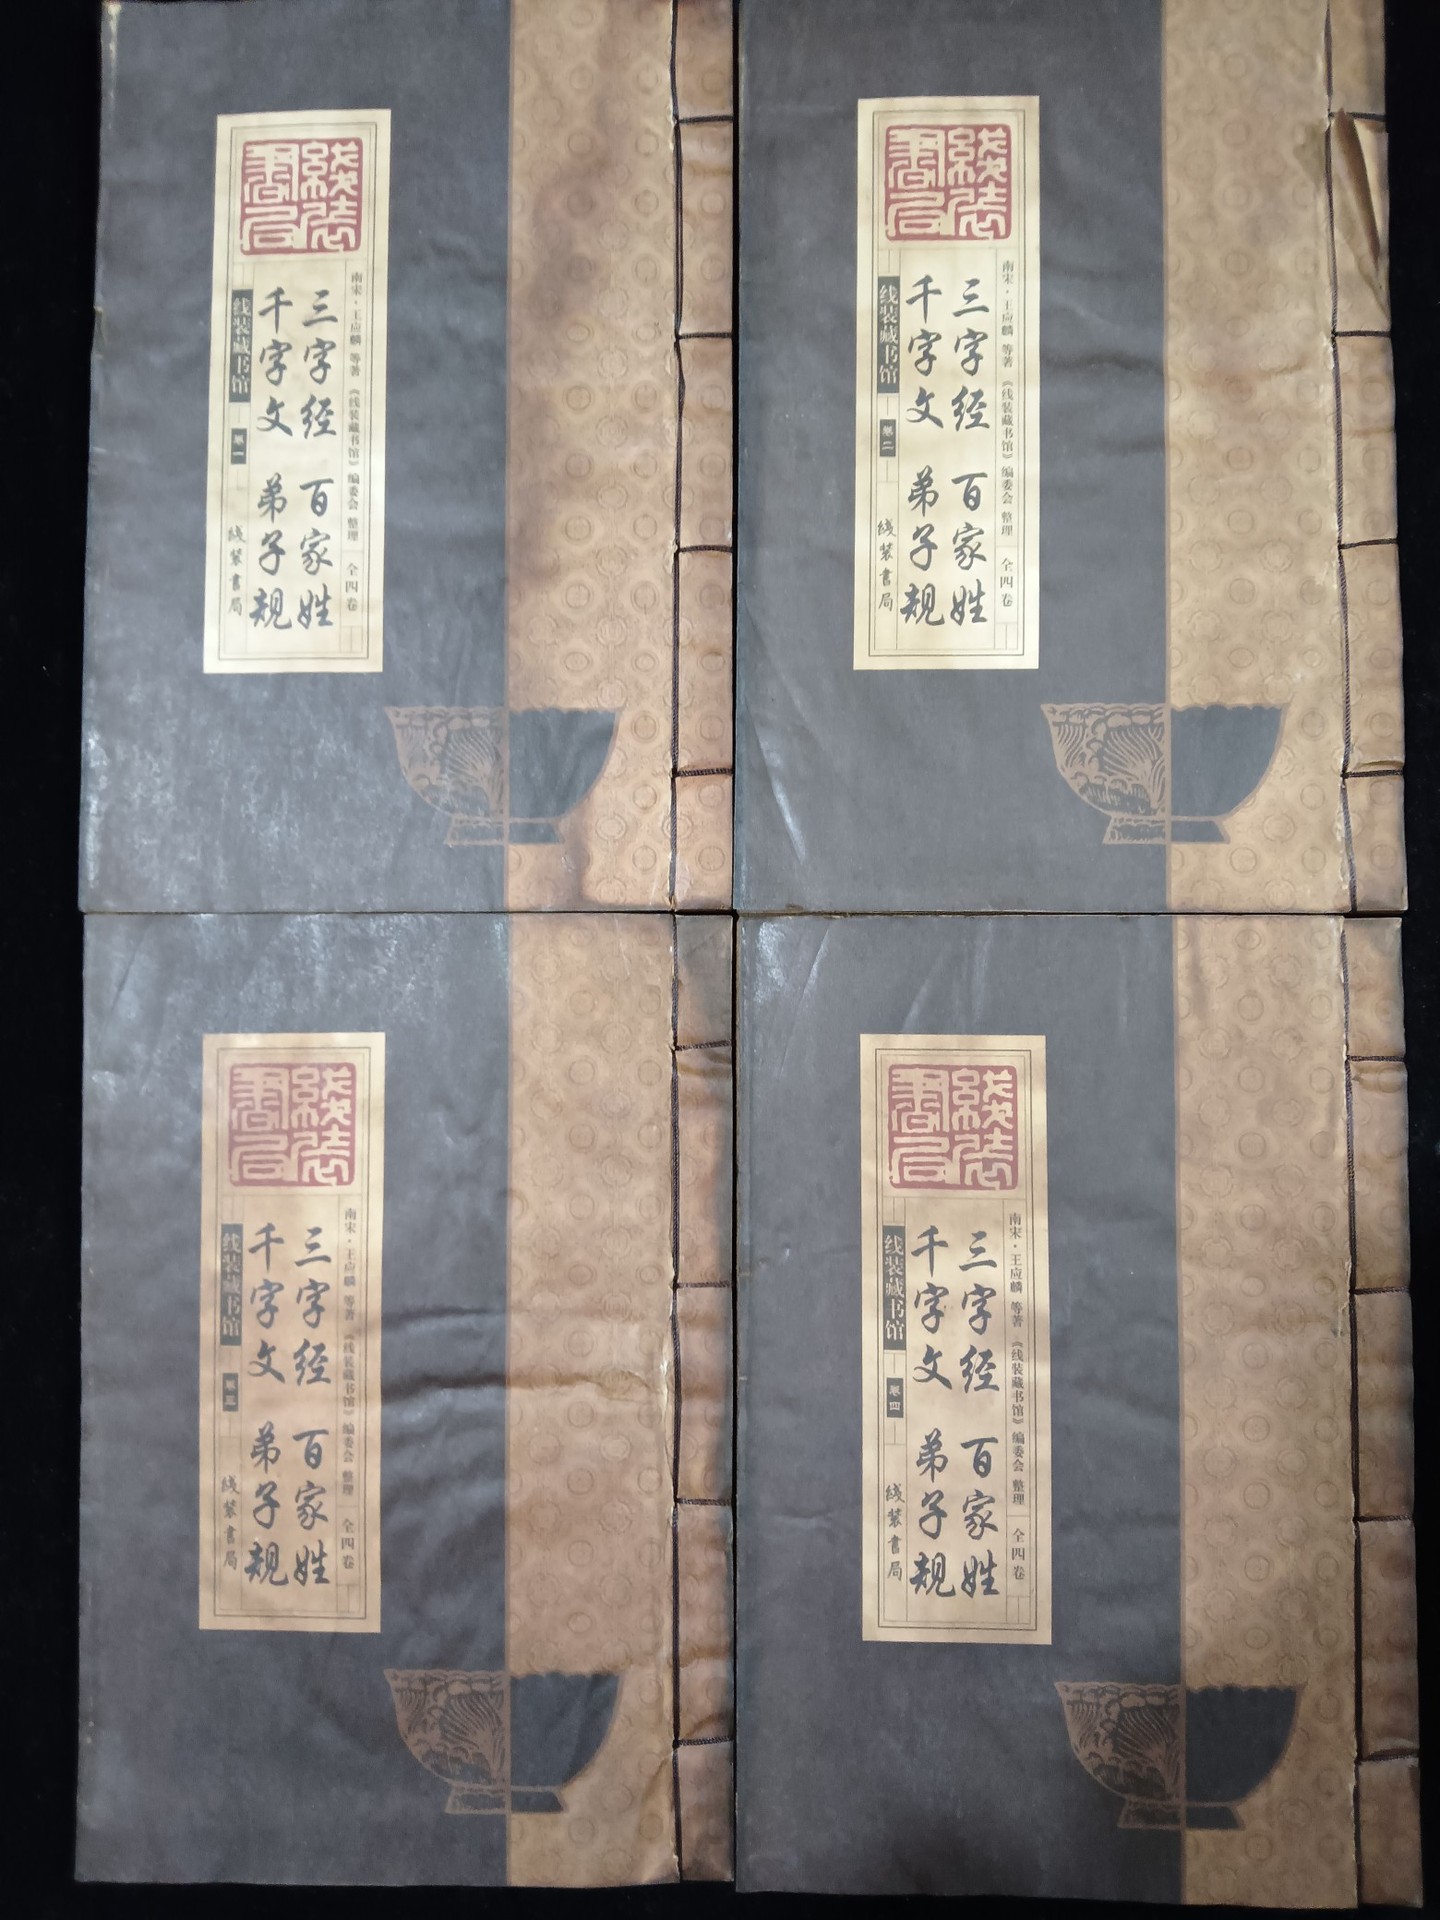 线装書局
南宋·王应麟 等著 《线装藏书馆》编委会 整理 全四卷
三字经 百家姓
千字文 弟子规
线装藏书馆 卷一
线装書局
线装書局
南宋·王应麟 等著 《线装藏书馆》编委会 整理 全四卷
三字经 百家姓
千字文 弟子规
线装藏书馆 卷二
线装書局
线装書局
南宋·王应麟 等著 《线装藏书馆》编委会 整理 全四卷
三字经 百家姓
千字文 弟子规
线装藏书馆 卷三
线装書局
线装書局
南宋·王应麟 等著 《线装藏书馆》编委会 整理 全四卷
三字经 百家姓
千字文 弟子规
线装藏书馆 卷四
线装書局